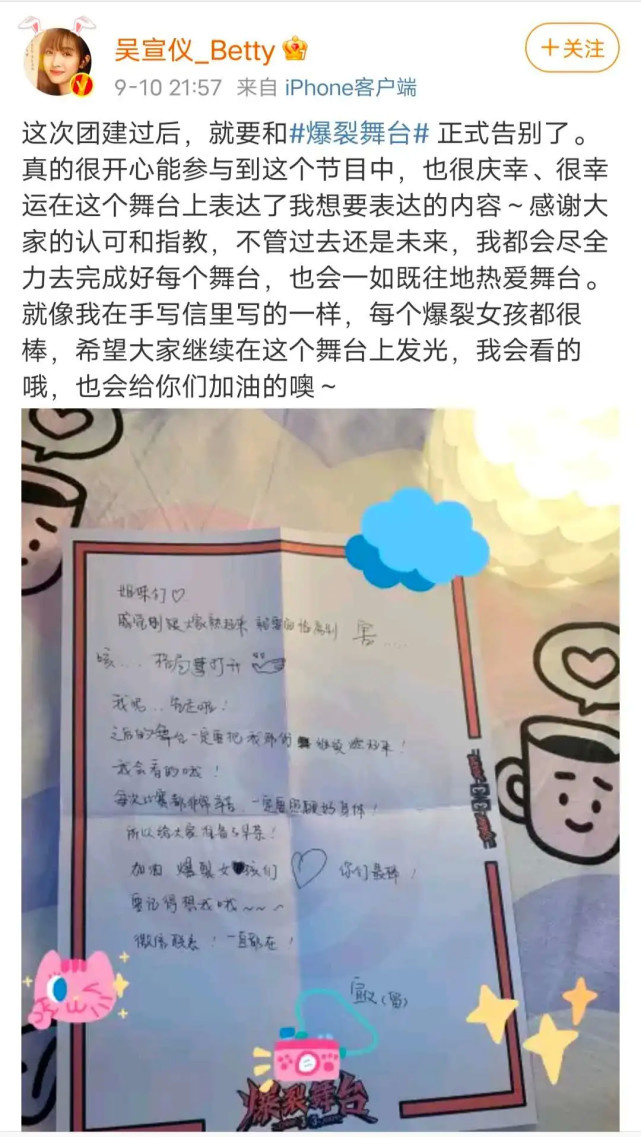 吴宣仪_Betty
+关注
9-10 21:57 来自 iPhone客户端
这次团建过后，就要和#爆裂舞台# 正式告别了。
真的很开心能参与到这个节目中，也很庆幸、很幸
运在这个舞台上表达了我想要表达的内容～感谢大
家的认可和指教，不管过去还是未来，我都会尽全
力去完成好每个舞台，也会一如既往地热爱舞台。
就像我在手写信里写的一样，每个爆裂女孩都很
棒，希望大家继续在这个舞台上发光，我会看的
哦，也会给你们加油的噢～
姐妹们♡
感觉刚跟大家熟起来 就要面临离别 害....
咳... 格局要打开
我呢..先走啦！
之后的舞台一定要把我那份 继续燃起来！
我会看的哦！
每次比赛都非常辛苦，一定要照顾好身体！
所以给大家准备了早茶！
加油 爆裂女孩们 ♡ 你们最棒！
要记得想我哦～～～
微信联系！一直都在！
宣仪(留)
爆裂舞台